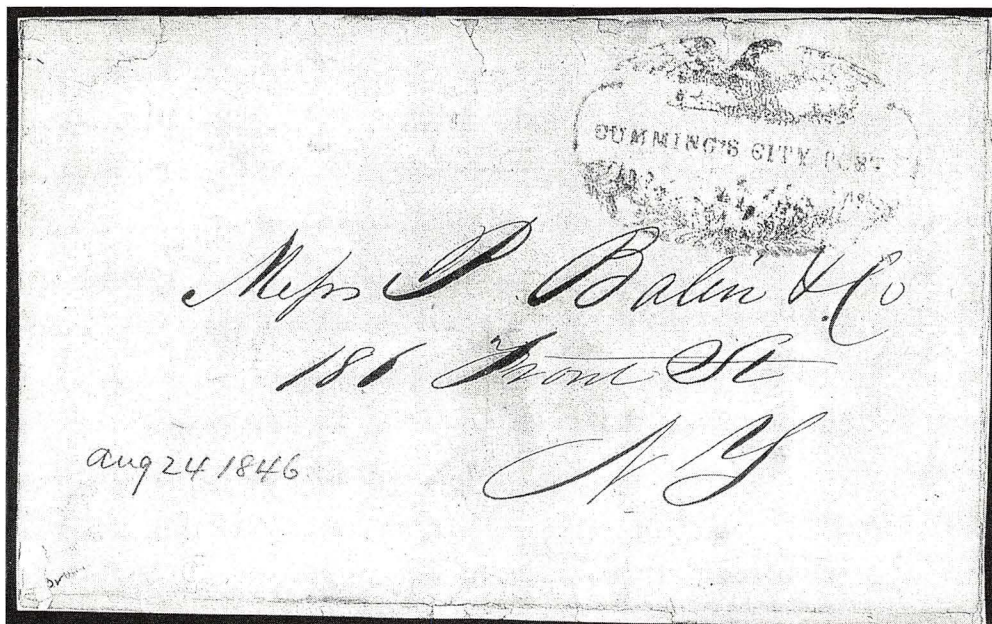 CUMMING'S CITY POST
Messrs P. Balen & Co
186 Front St
N Y
Aug 24 1846